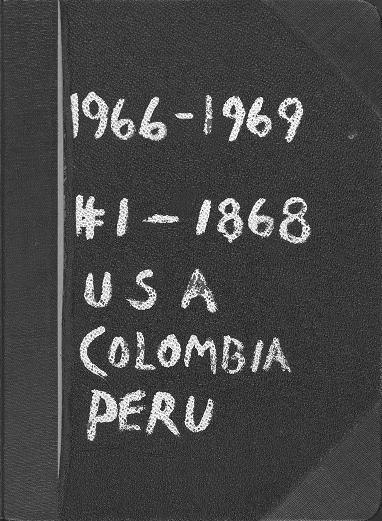 1966-1969
#1 - 1868
USA
COLOMBIA
PERU